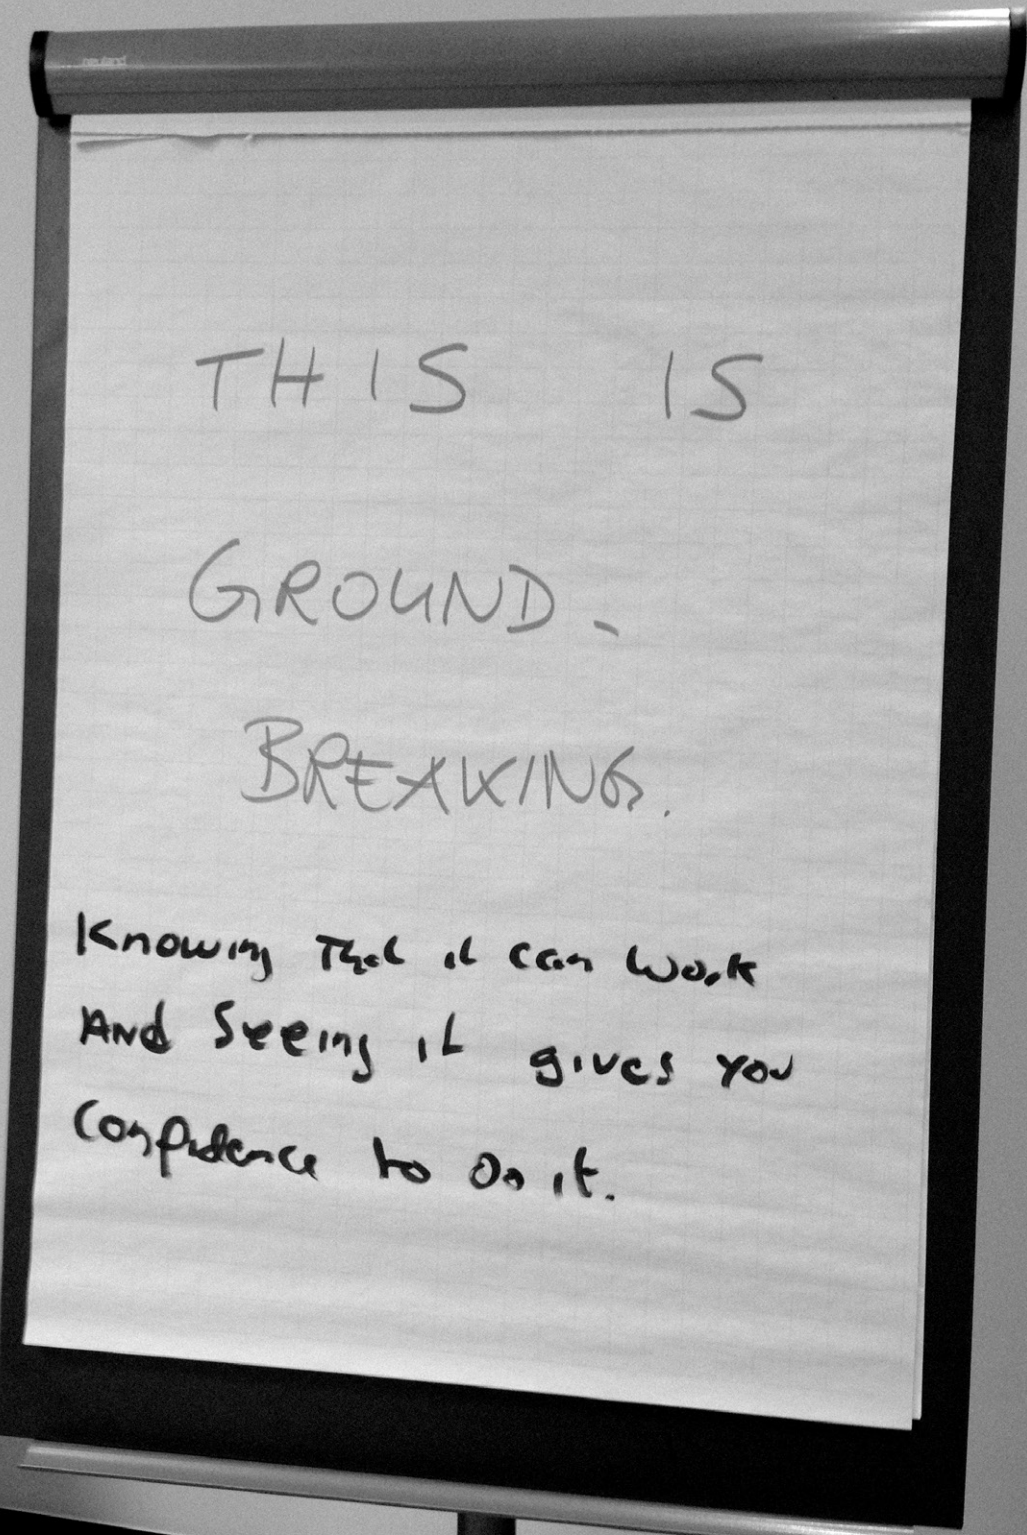 neuland
THIS IS
GROUND-
BREAKING.
Knowing That it can work
AND Seeing it gives you
Confidence to Do it.